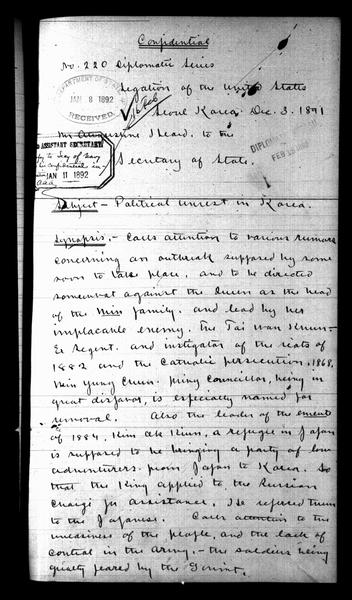 Confidential
No. 220 Diplomatic Series
Legation of the United States
DEPARTMENT OF STATE
JAN 8 1892
RECEIVED
Seoul Korea Dec. 3. 1891
Mr Augustine Heard, to the
ASSISTANT SECRETARY
JAN 11 1892
Secretary of State.
DIPLOM
Subject - Political unrest in Korea.
Synopsis. - Calls attention to various rumors
concerning an outbreak supposed by some
soon to take place, and to be directed
somewhat against the Queen as the head
of the Min family. and lead by her
implacable enemy, the Tai Wan Khun -
Ex Regent. and instigator of the riots of
1882 and the Catholic persecution, 1868.
Min Yung Chun. Councillor, being in
great disfavor, is especially named for
removal. Also the leader of the emeute
of 1884, Kim Ok Kiun, a refugee in Japan
is supposed to be bringing a party of low
adventurers from Japan to Korea. So
that the King applied to the Russian
Chargé for assistance. He refered them
to the Japanese. Calls attention to the
uneasiness of the people, and the lack of
control in the army. - the soldiers being
greatly feared by the Govmt.